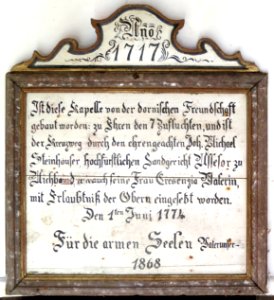 Año
1717
Ist diese Kapelle von der dornischen Freundschaft
gebaut worden: zu Ehren den 7 Zufluchten, und ist
der Kreuzweg durch den ehrengeachten Joh. Michael
Steinhauser hochfürstlichen Landgericht Assesor zu
seine Frau Creszenzia
mit Erlaubniß der Obern eingesetzt worden.
Den 1ten Juni 1774
Für die armen Seelen Vaterunser-
1868